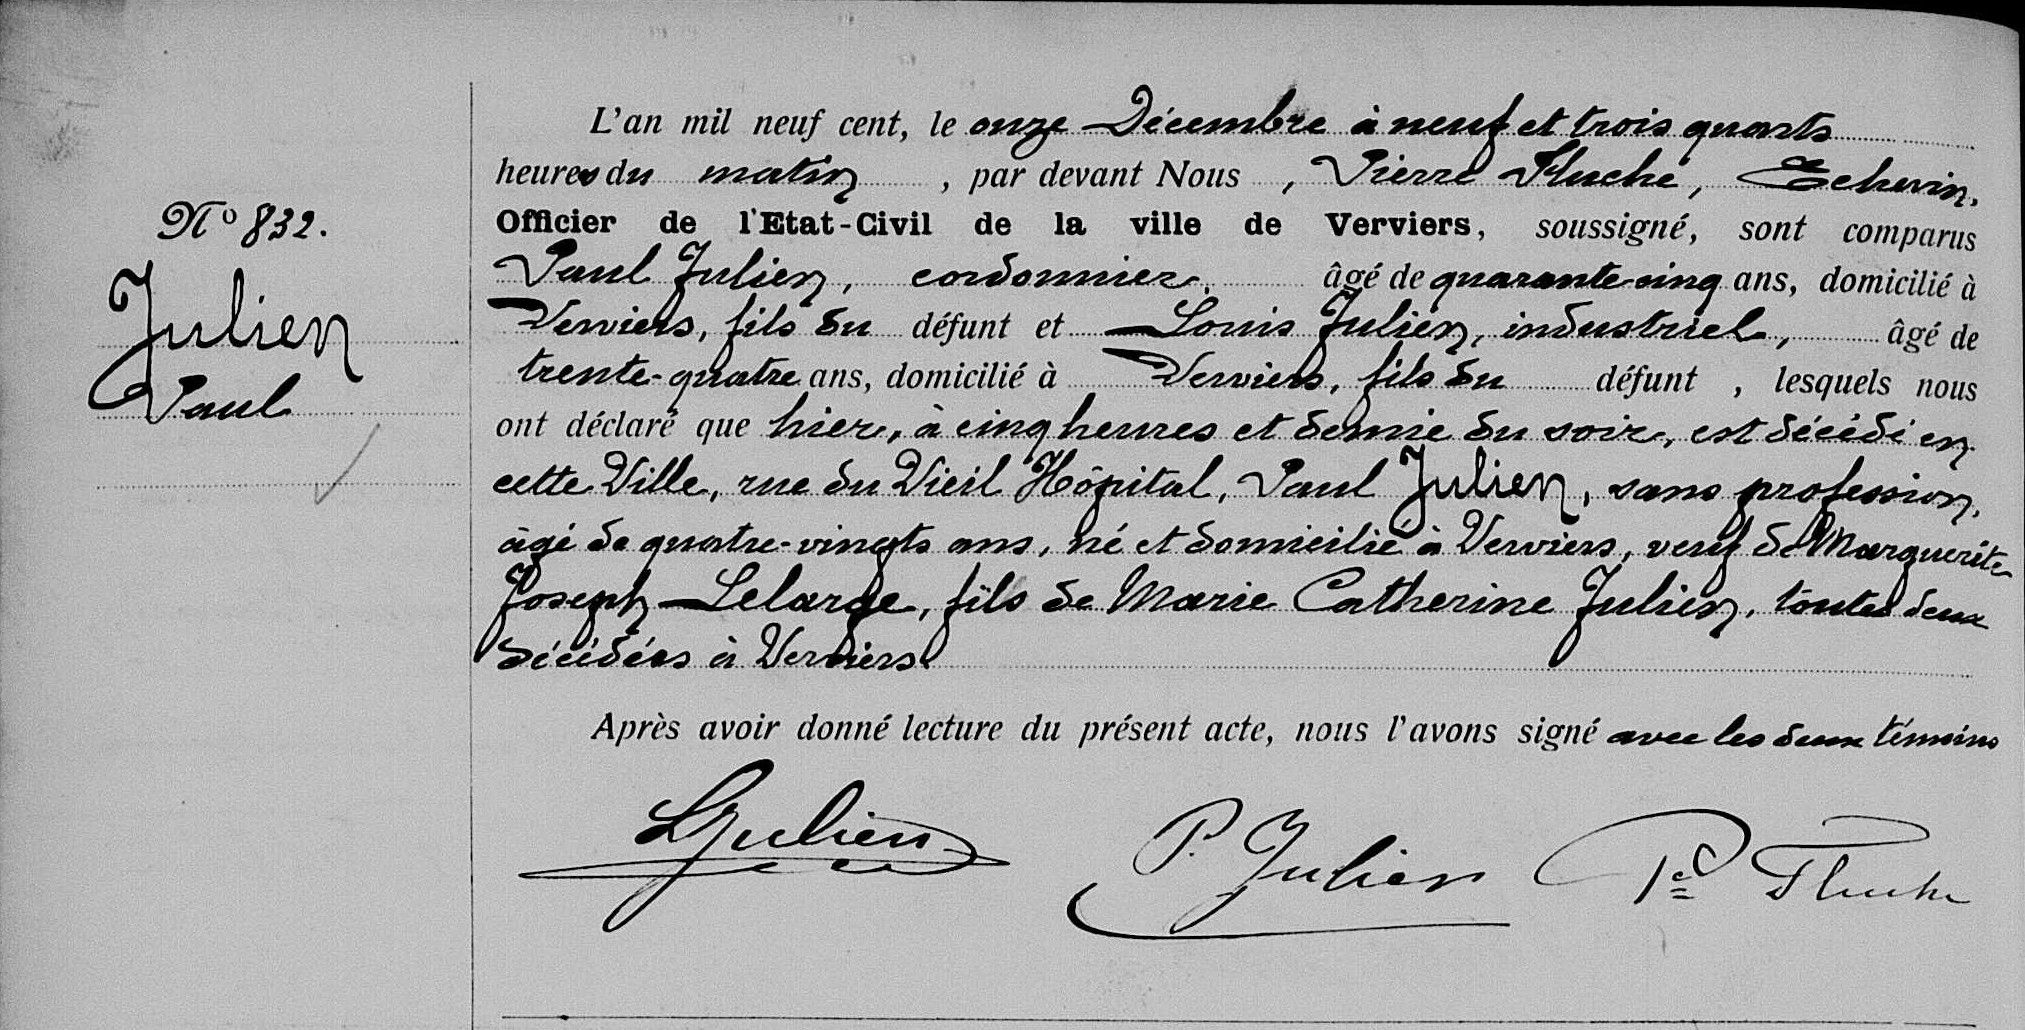 N° 832.
Julien
Paul
L'an mil neuf cent, le onze Décembre à neuf et trois quarts
heures du matin, par devant Nous, Pierre Fluche, Echevin,
Officier de l'Etat-Civil de la ville de Verviers, soussigné, sont comparus
Paul Julien, cordonnier, âgé de quarante-cinq ans, domicilié à
Verviers, fils du défunt et Louis Julien, industriel, âgé de
trente-quatre ans, domicilié à Verviers, fils du défunt, lesquels nous
ont déclaré que hier, à cinq heures et demie du soir, est décédé en
cette Ville, rue du Vieil Hôpital, Paul Julien, sans profession,
âgé de quatre-vingts ans, né et domicilié à Verviers, veuf de Marguerite
Joseph Lelarge, fils de Marie Catherine Julien, toutes deux
décédées à Verviers.
Après avoir donné lecture du présent acte, nous l'avons signé avec les deux témoins
LJulien
P. Julien
Pre Fluche